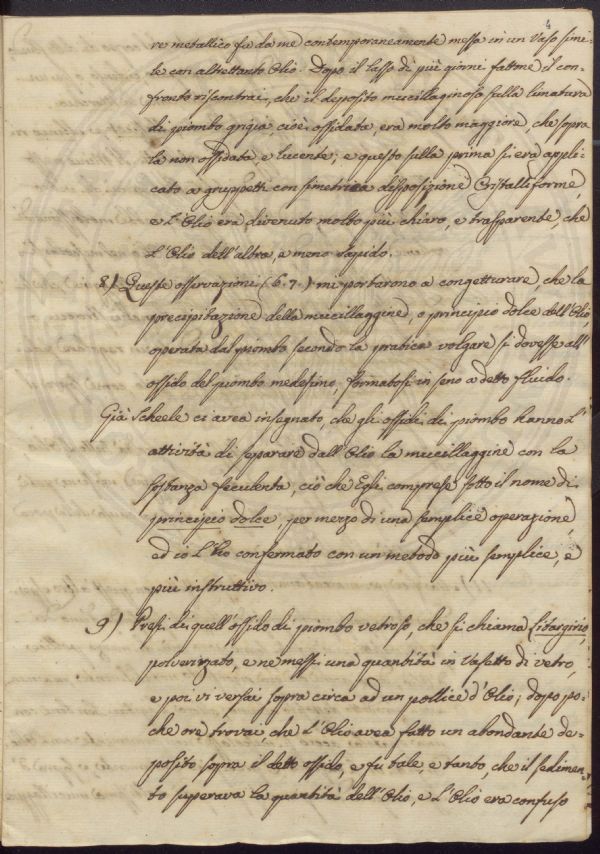 4
re metallico fu da me contemporaneamente messa in un Vaso simi-
le con altrettanto Olio. Dopo il lasso di più giorni fattone il con-
fronto riscontrai, che il deposito mucillaginoso sulla limatura
di piombo grigia, cioè ossidata, era molto maggiore, che sopra
la non ossidata, e lucente; e questo sulla prima si era appli-
cato a gruppetti con simetrica disposizione Cristalliforme,
e l'Olio era divenuto molto più chiaro, e trasparente, che
l'Olio dell'altra, e meno sapido.
8) Queste osservazioni (6.7.) mi portarono a congetturare, che la
precipitazione della mucillaggine, o principio dolce dell'Olio,
operata dal piombo secondo la pratica volgare si dovesse all'
ossido del piombo medesimo, formatosi in seno a detto fluido.
Già Scheele ci avea insegnato, che gli ossidi di piombo hanno l'
attività di separare dall'Olio la mucillaggine con la
sostanza feculenta, ciò che Egli comprese sotto il nome di
principio dolce, per mezzo di una semplice operazione,
ed io l'ho confermato con un metodo più semplice, e
più instruttivo.
9) Presi di quell'ossido di piombo vetroso, che si chiama Litargirio,
polverizzato, e ne messi una quantità in Vasetto di vetro,
e poi vi versai sopra circa ad un pollice d'Olio; dopo po-
che ore trovai, che l'Olio avea fatto un abondante de-
posito sopra il detto ossido, e fu tale, e tanto, che il sedimen-
to superava la quantità dell'Olio, e l'Olio era confuso